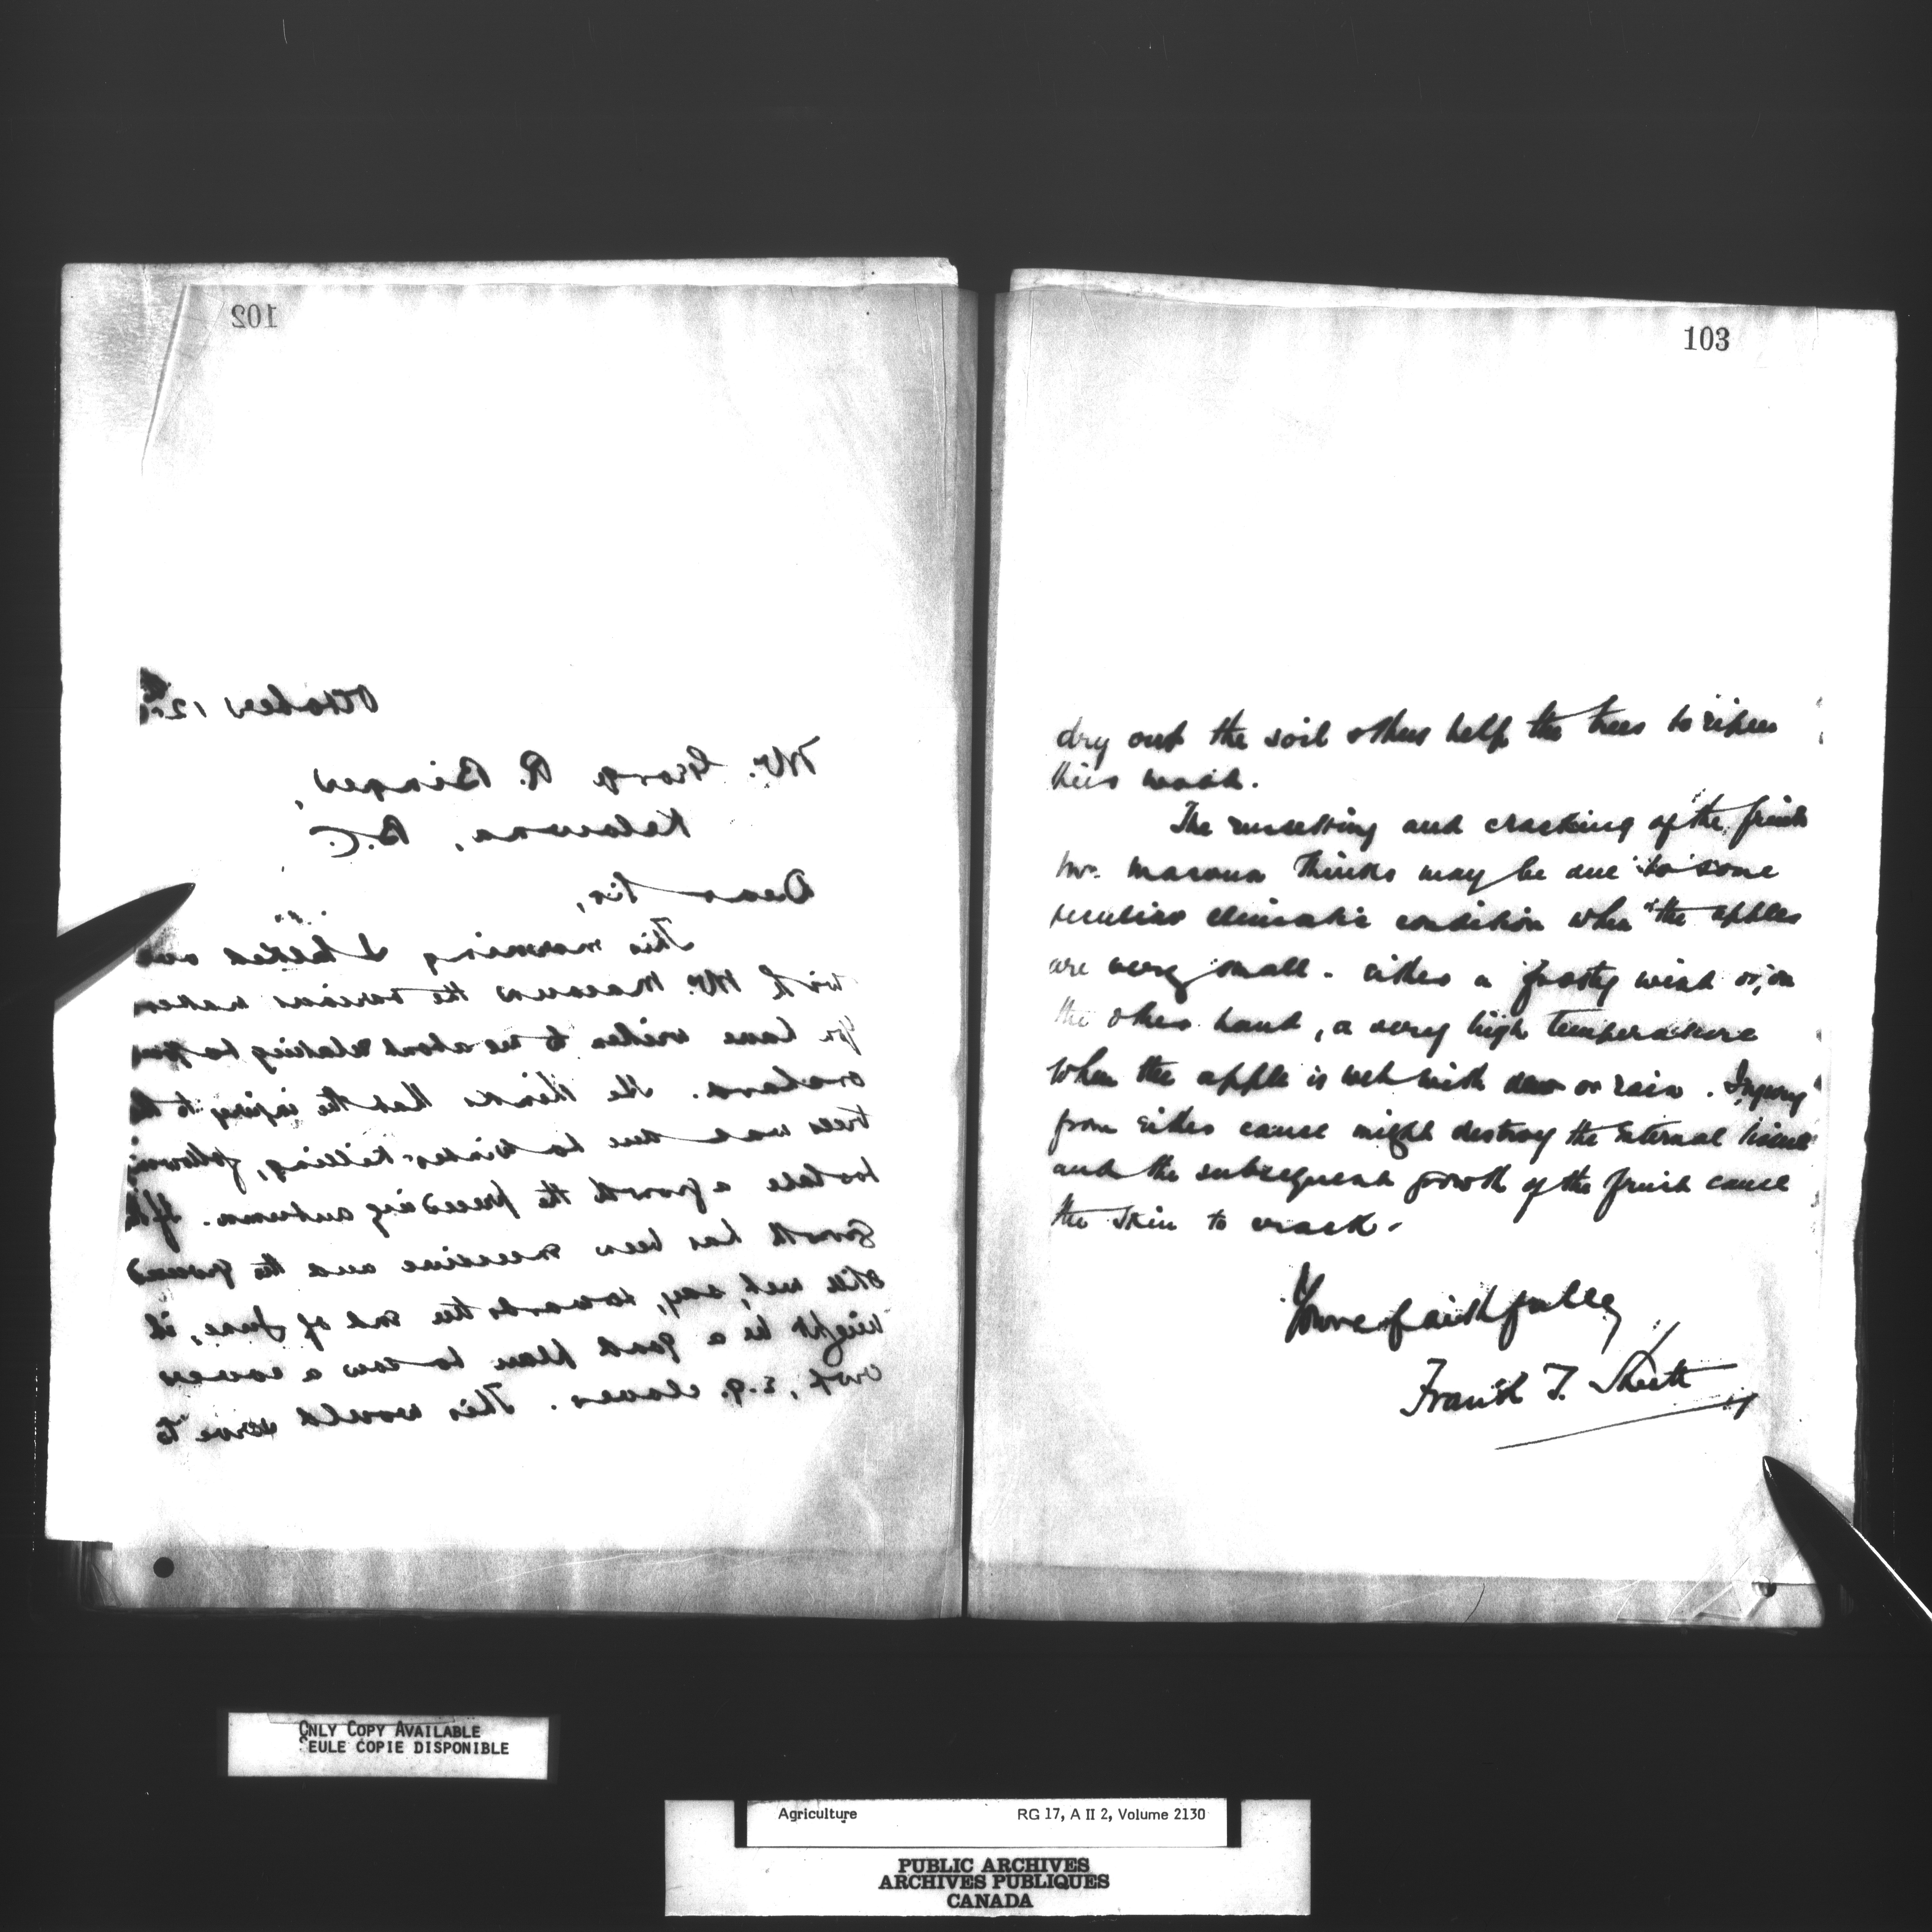 102
October 12
Mr. George R. Binger,
Kelowna, B.C.
Dear Sir,
This morning I talked over
with Mr. Macoun the various matters
you have written to me about relating to your
orchard. He thinks that the injury to the
trees was due to winter-killing, following
too late a growth the preceding autumn. If the
growth has been excessive and the ground
still wet, say, towards the end of June, it
might be a good plan to sow a cover
crop, e.g. clover. This would serve to
103
dry out the soil & thus help the trees to ripen
their wood.
The russetting and cracking of the fruit
Mr. Macoun thinks may be due to some
peculiar climatic condition when the apples
are very small - either a frosty wind or, on
the other hand, a very high temperature
when the apple is wet with dew or rain. Injury
from either cause might destroy the external tissue
and the subsequent growth of the fruit cause
the skin to crack.
Yours faithfully
Frank T. Shutt
ONLY COPY AVAILABLE
SEULE COPIE DISPONIBLE
Agriculture RG 17, A II 2, Volume 2130
PUBLIC ARCHIVES
ARCHIVES PUBLIQUES
CANADA